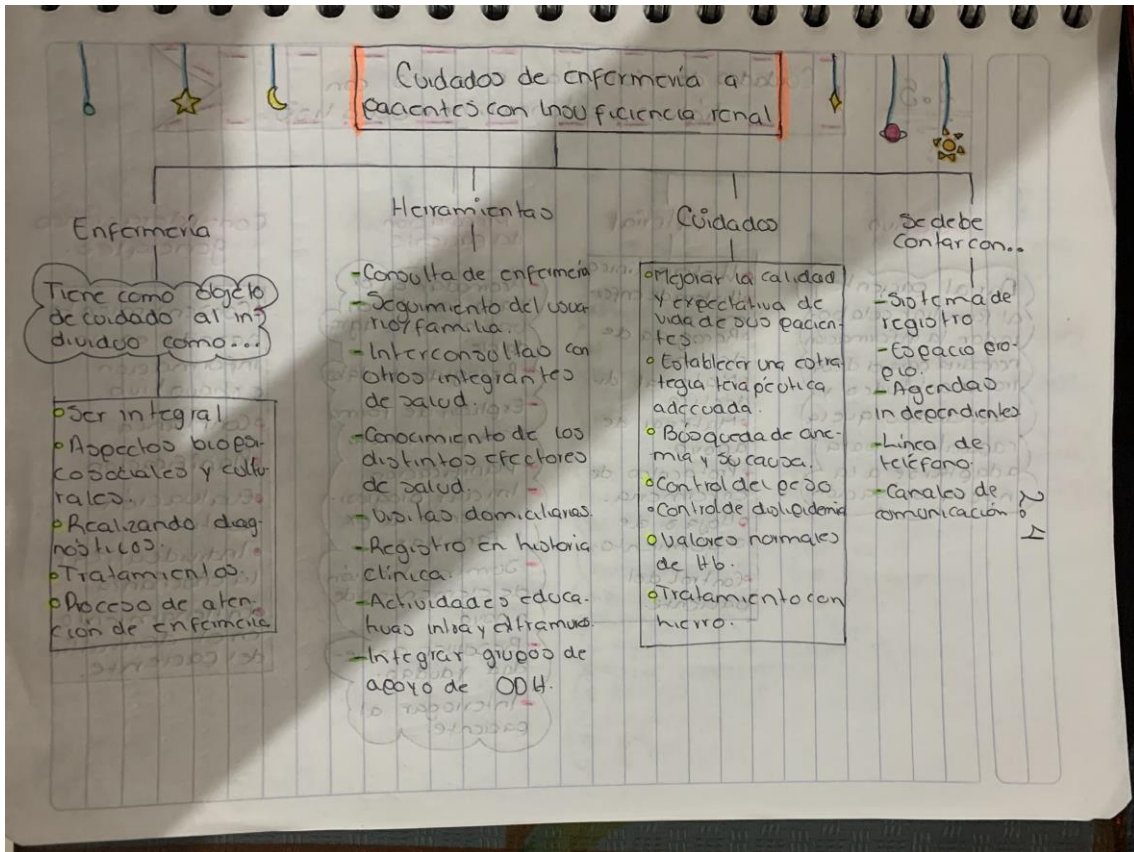 Cuidados de enfermería a
pacientes con insuficiencia renal
Enfermería
Tiene como objeto
de cuidado al in-
dividuo como...
Ser integral
Aspectos biopsi-
cosociales y cultu-
rales.
Realizando diag-
nósticos.
Tratamientos.
Proceso de aten-
ción de enfermería
Herramientas
-Consulta de enfermería
-Seguimiento del usua-
rio y familia.
-Interconsultas con
otros integrantes
de salud.
-Conocimiento de los
distintos efectores
de salud.
-Visitas domiciliarias.
-Registro en historia
clínica.
-Actividades educa-
tivas intra y extramuros
-Integrar grupos de
apoyo de ODH.
Cuidados
Mejorar la calidad
y expectativa de
vida de sus pacien-
tes
Establecer una estra-
tegia terapéutica
adecuada.
Búsqueda de ane-
mia y su causa.
Control del peso
Control de dislipidemia
Valores normales
de Hb.
Tratamiento con
hierro.
Se debe
contar con..
-Sistema de
registro
-Espacio pro-
pio.
-Agendas
independientes
-Línea de
teléfono.
-Canales de
comunicación
2.4